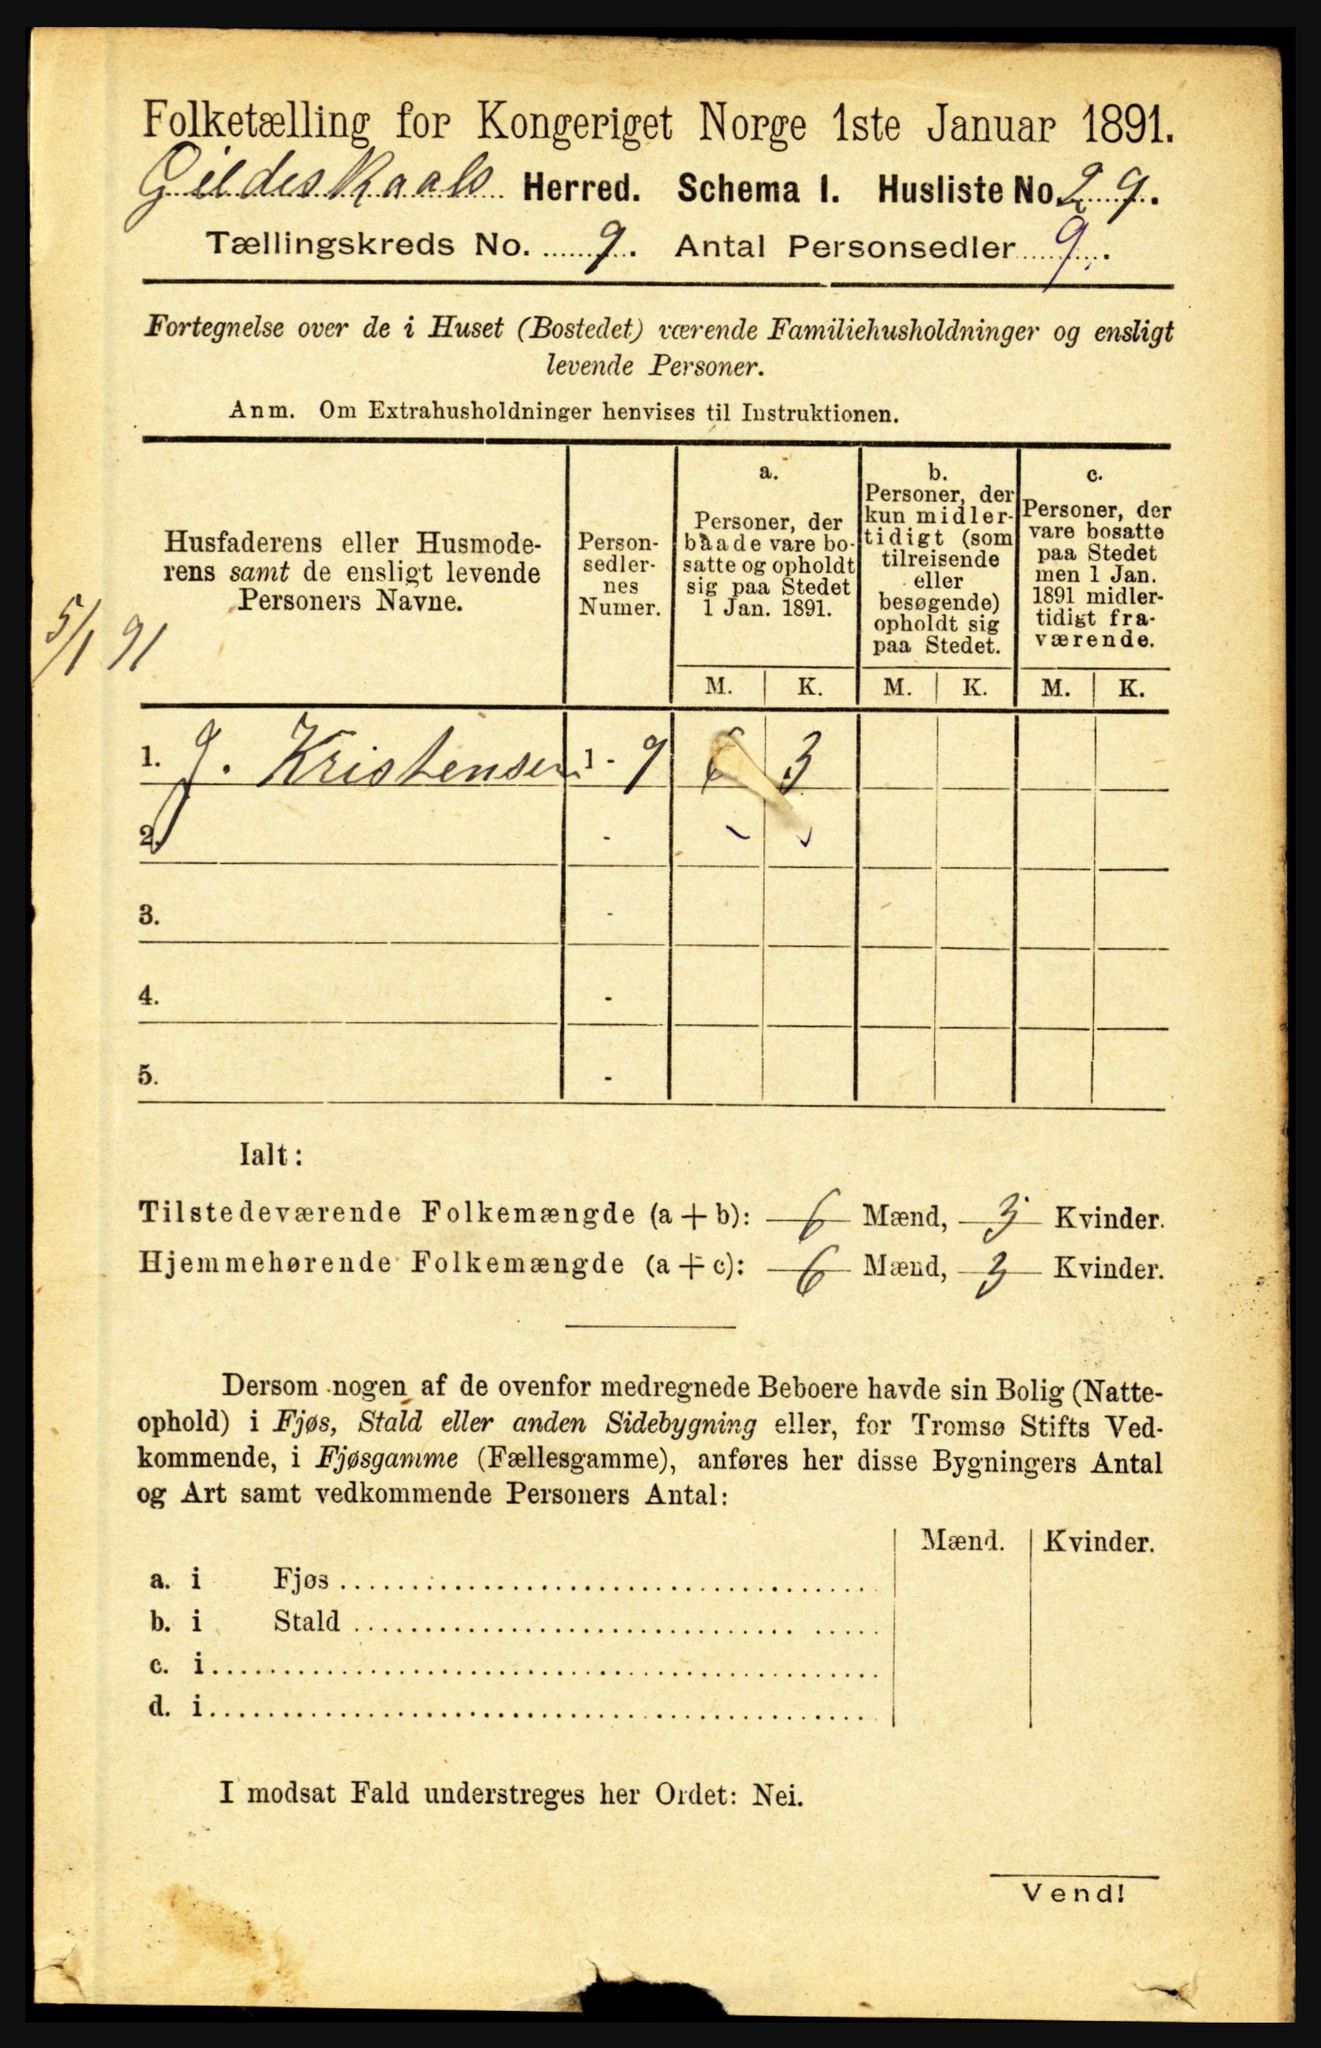 Folketælling for Kongeriget Norge 1ste Januar 1891.
Gildeskaals Herred. Schema 1. Husliste No. 29.
Tællingskreds No. 9. Antal Personsedler 9.
Fortegnelse over de i Huset (Bostedet) værende Familiehusholdninger og ensligt
levende Personer.
Anm. Om Extrahusholdninger henvises til Instruktionen.
Husfaderens eller Husmode-
rens samt de ensligt levende
Personers Navne.
Person-
sedler-
nes
Numer.
a.
Personer, der
baade vare bo-
satte og opholdt
sig paa Stedet
1 Jan. 1891.
b.
Personer, der
kun midler-
tidigt (som
tilreisende
eller
besøgende)
opholdt sig
paa Stedet.
c.
Personer, der
vare bosatte
paa Stedet
men 1 Jan.
1891 midler-
tidigt fra-
værende.
5/1 91
M. K. M. K. M. K.
1. J. Kristensen 1 - 9 6 3
2. -
3. -
4. -
5. -
Ialt:
Tilstedeværende Folkemængde (a + b): 6 Mænd, 3 Kvinder.
Hjemmehørende Folkemængde (a + c): 6 Mænd, 3 Kvinder.
Dersom nogen af de ovenfor medregnede Beboere havde sin Bolig (Natte-
ophold) i Fjøs, Stald eller anden Sidebygning eller, for Tromsø Stifts Ved-
kommende, i Fjøsgamme (Fællesgamme), anføres her disse Bygningers Antal
og Art samt vedkommende Personers Antal:
Mænd. Kvinder.
a. i Fjøs
b. i Stald
c. i
d. i
I modsat Fald understreges her Ordet: Nei.
Vend!